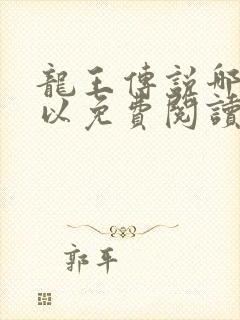 龍王傳說哪
以免費閱讀
郭平